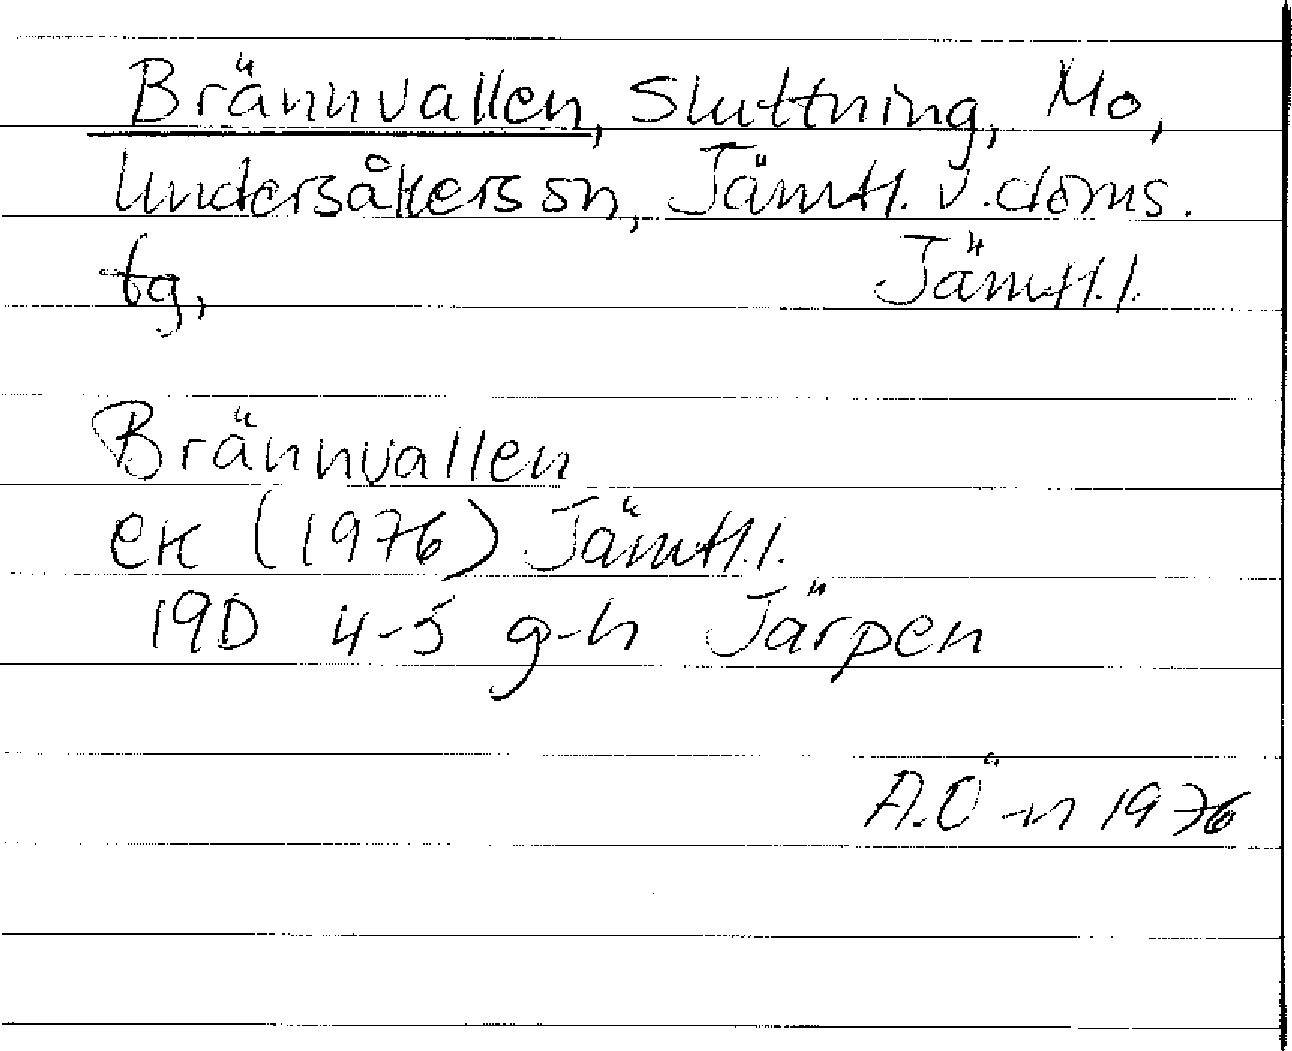 Brännvallen, Sluttning, Mo,
Undersåkers sn, Jämtl. v. doms.
tg, Jämtl.l.
Brännvallen
ek (1976) Jämtl.l.
19D 4-5 g-h Järpen
A.Ö-n 1976